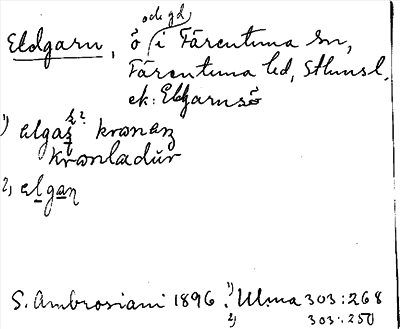 och gd
Eldgarn, ö i Färentuna sn,
Färentuna hd, Sthmsl.
ek: Eldgarnsö
1) elgaʐ k? kronaʐ
kronladŭr
2) elgaɳ
S. Ambrosiani 1896. 1) Ulma 303:268
2) 303:250